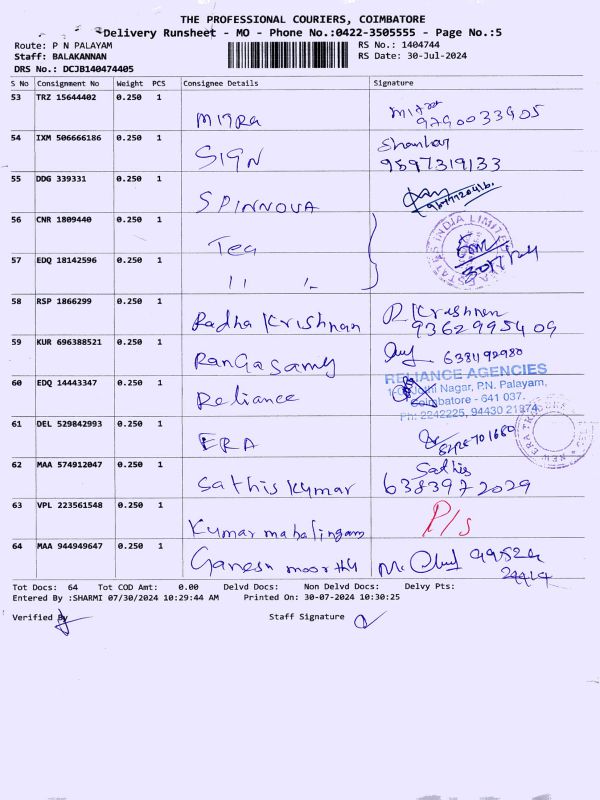 THE PROFESSIONAL COURIERS, COIMBATORE
Delivery Runsheet - MO - Phone No.:0422-3505555 - Page No.:5
Route: P N PALAYAM
RS No.: 1404744
Staff: BALAKANNAN
RS Date: 30-Jul-2024
DRS No.: DCJB140474405
S No Consignment No Weight PCS Consignee Details Signature
53 TRZ 15644402 0.250 1
MITRA 9790033905
54 IXM 506666186 0.250 1
SIGN Shankar
9897319133
55 DDG 339331 0.250 1
SPINNOVA
56 CNR 1809440 0.250 1
Tea
INDIA LIMITED
57 EDQ 18142596 0.250 1
11 11
58 RSP 1866299 0.250 1
Radha Krishnan R. Krishnan
9362995409
59 KUR 696388521 0.250 1
Rangasamy 6381192980
60 EDQ 14443347 0.250 1
Reliance
RELIANCE AGENCIES
Nagar, P.N. Palayam,
Coimbatore - 641 037.
Ph: 2242225, 94430 21874
61 DEL 529842993 0.250 1
ERA
NEW ERA
62 MAA 574912047 0.250 1
Sathis Kumar Sathis
6383972029
63 VPL 223561548 0.250 1
Kumar mahalingam P/s
64 MAA 944949647 0.250 1
Ganesh moorthy 99524
24419
Tot Docs: 64 Tot COD Amt: 0.00 Delvd Docs: Non Delvd Docs: Delvy Pts:
Entered By :SHARMI 07/30/2024 10:29:44 AM Printed On: 30-07-2024 10:30:25
Verified By Staff Signature